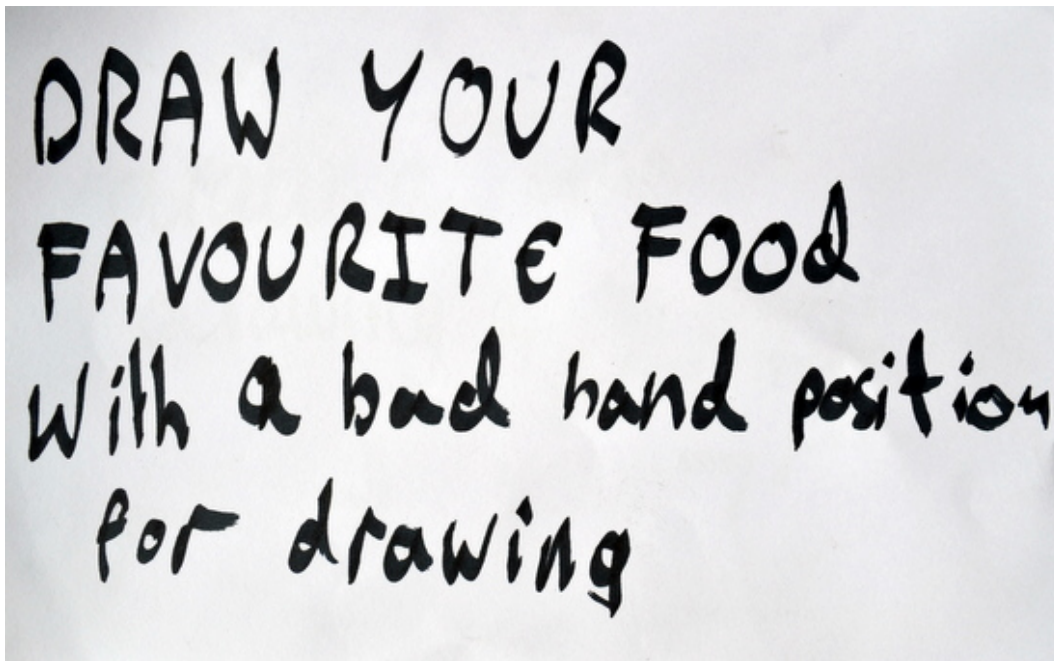 DRAW YOUR
FAVOURITE FOOd
With a bad hand position
for drawing